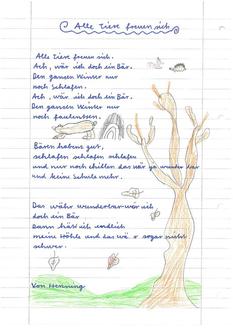 Alle Tiere freuen sich
Alle Tiere freuen sich.
Ach, wär ich doch ein Bär.
Den ganzen Winter nur
noch schlafen.
Ach, wär ich doch ein Bär.
Den ganzen Winter nur
noch faulenzen.
Bären habens gut,
schlafen schlafen schlafen
und nur noch chillen das wär ja wunder bar
und keine Schule mehr.
Das währ wunderbar wär ich
doch ein Bär
Dann hätt ich endlich
meine Höhle und das wä r sogar nicht
schwer.
Von Henning